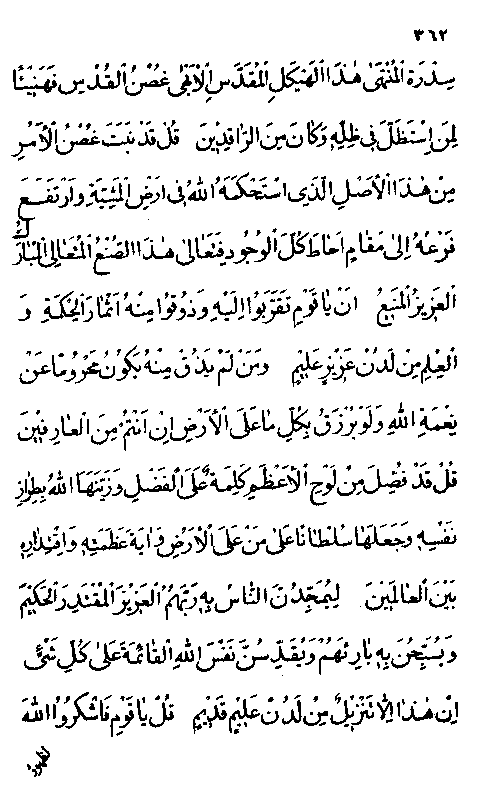 ٣٦٢
سِدْرَةِ الْمُنْتَهٰى هٰذَا الْهَيْكَلِ الْمُقَدَّسِ الْأَبْهٰى غُصْنُ الْقُدْسِ فَهَنِيْئًا
لِمَنِ اسْتَظَلَّ فِى ظِلِّهِ وَكَانَ مِنَ الرَّاقِدِيْنَ قُلْ قَدْ نَبَتَ غُصْنُ الْأَمْرِ
مِنْ هٰذَا الْأَصْلِ الَّذِى اسْتَحْكَمَهُ اللّٰهُ فِى اَرْضِ الْمَشِيَّةِ وَارْتَفَعَ
فَرْعُهُ اِلٰى مَقَامٍ اَحَاطَ كُلَّ الْوُجُودِ فَتَعَالٰى هٰذَا الصُّنْعُ الْمُتَعَالِى الْمُبَارَكُ
الْعَزِيزُ الْمَنِيعُ اَنْ يَا قَوْمِ تَقَرَّبُوا اِلَيْهِ وَذُوقُوا مِنْهُ اَثْمَارَ الْحِكْمَةِ وَ
الْعِلْمِ مِنْ لَدُنْ عَزِيزٍ عَلِيْمٍ وَمَنْ لَمْ يَذُقْ مِنْهُ يَكُوْنُ مَحْرُومًا عَنْ
نِعْمَةِ اللّٰهِ وَلَوْ يُرْزَقُ بِكُلِّ مَا عَلَى الْأَرْضِ اِنْ اَنْتُمْ مِنَ الْعَارِفِيْنَ
قُلْ قَدْ فُصِّلَ مِنْ لَوْحِ الْأَعْظَمِ كَلِمَةٌ عَلَى الْفَضْلِ وَزَيَّنَهَا اللّٰهُ بِطِرَازِ
نَفْسِهِ وَجَعَلَهَا سُلْطَانًا عَلٰى مَنْ عَلَى الْأَرْضِ وَاٰيَةَ عَظَمَتِهِ وَاقْتِدَارِهِ
بَيْنَ الْعَالَمِيْنَ لِيُمَجِّدُنَّ النَّاسُ بِهِ رَبَّهُمُ الْعَزِيزَ الْمُقْتَدِرَ الْحَكِيْمَ
وَيُسَبِّحُنَّ بِهِ بَارِئَهُمْ وَيُقَدِّسُنَّ نَفْسَ اللّٰهِ الْقَائِمَةَ عَلٰى كُلِّ شَىْءٍ
اِنْ هٰذَا اِلَّا تَنْزِيْلٌ مِنْ لَدُنْ عَلِيْمٍ قَدِيْمٍ قُلْ يَا قَوْمِ فَاشْكُرُوا اللّٰهَ